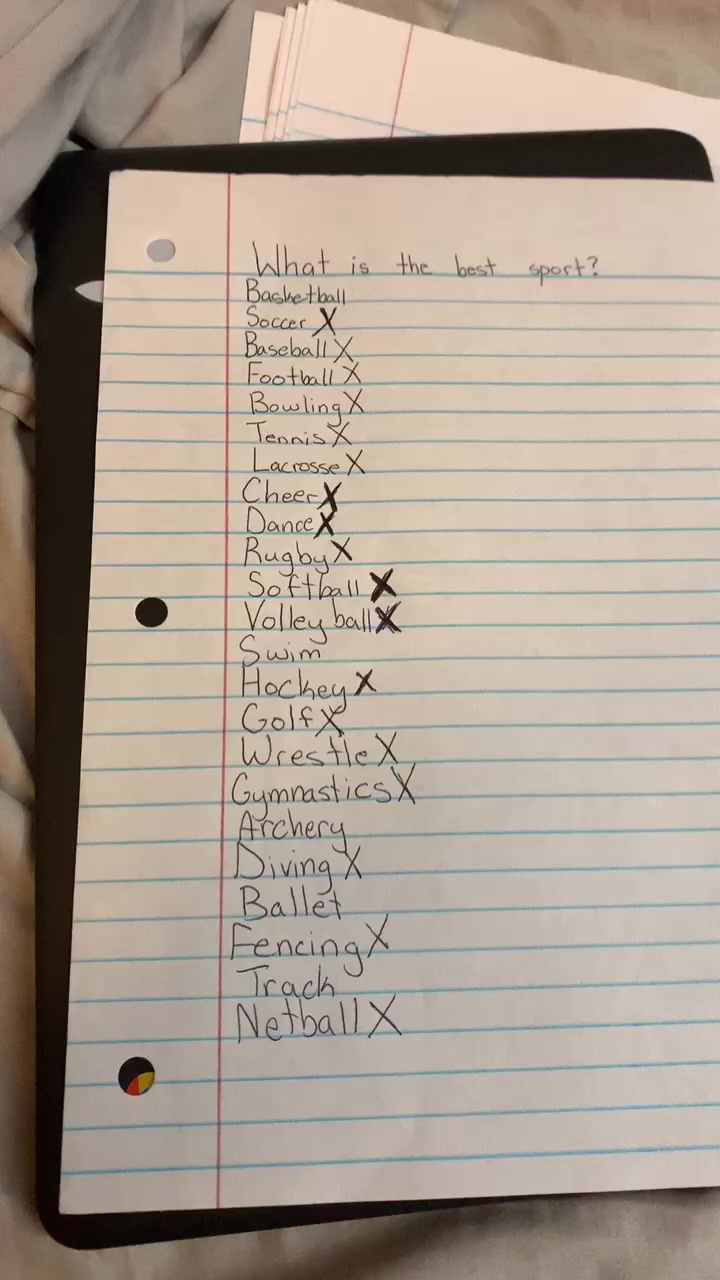 What is the best sport?
Basketball
Soccer X
Baseball X
Football X
Bowling X
Tennis X
Lacrosse X
Cheer X
Dance X
Rugby X
Softball X
Volleyball X
Swim
Hockey X
Golf X
Wrestle X
Gymnastics X
Archery
Diving X
Ballet
Fencing X
Track
Netball X